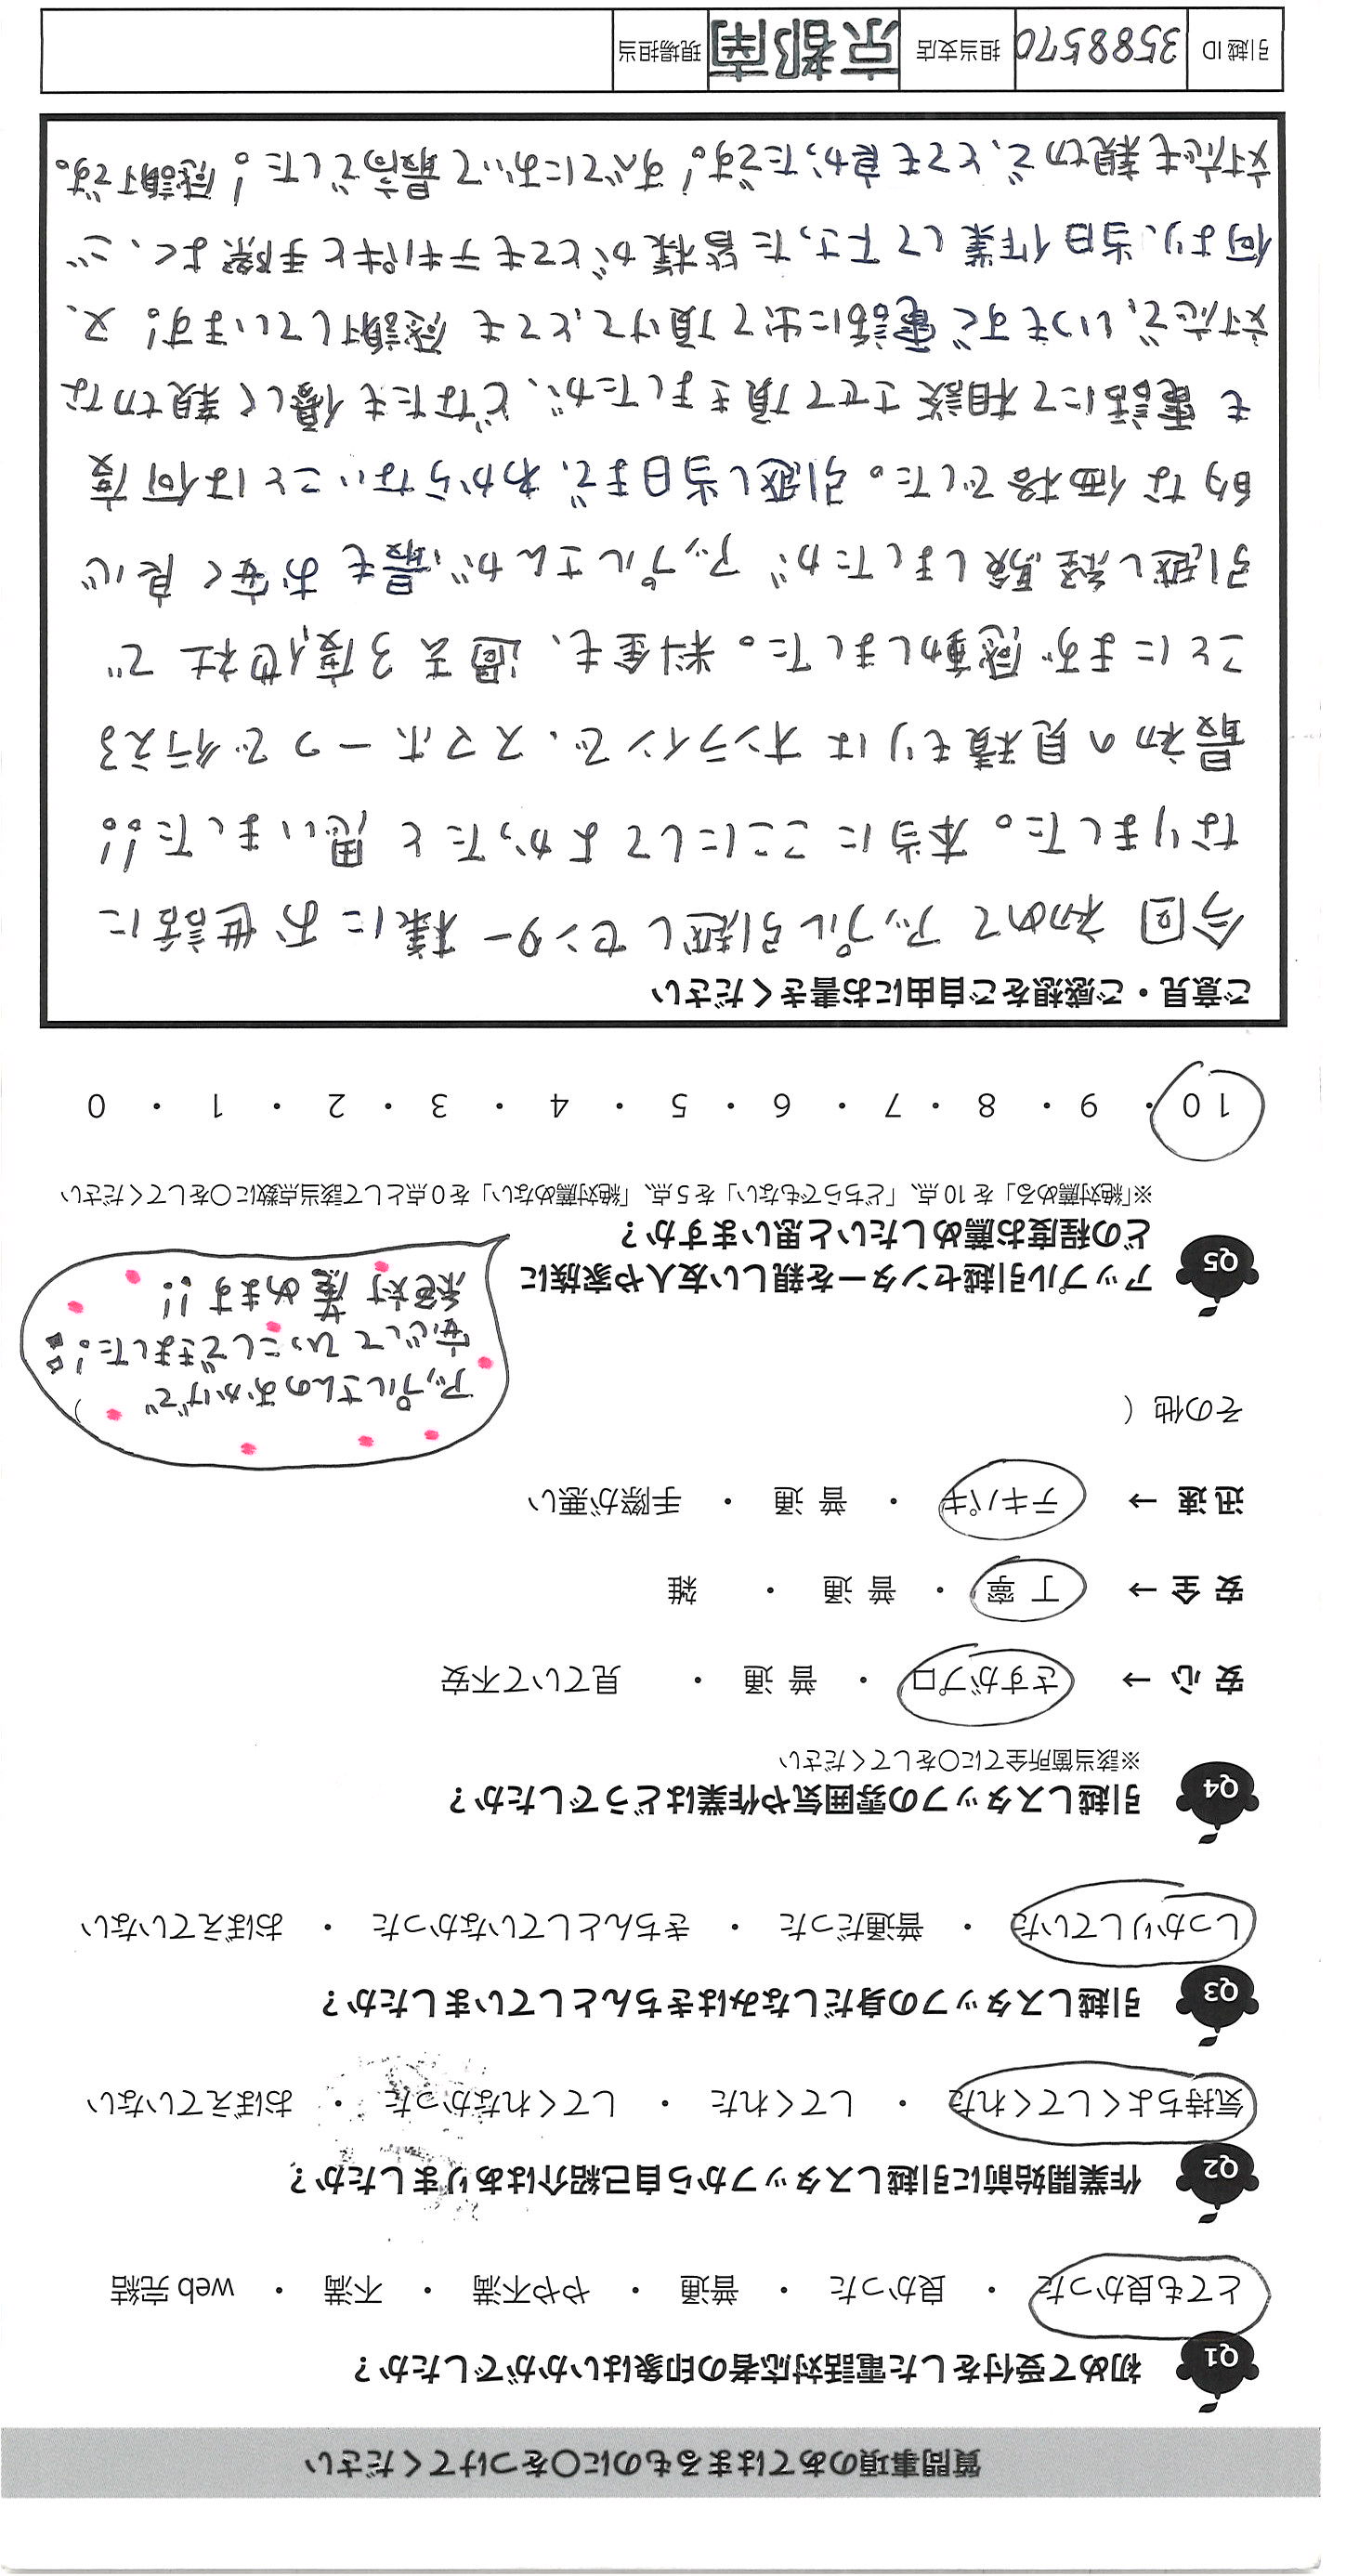 質問事項のあてはまるものに○をつけてください
Q1 初めて受付をした電話対応者の印象はいかがでしたか？
とても良かった ・ 良かった ・ 普通 ・ やや不満 ・ 不満 ・ web 完結
Q2 作業開始前に引越しスタッフから自己紹介はありましたか？
気持ちよくしてくれた ・ してくれた ・ してくれなかった ・ おぼえていない
Q3 引越しスタッフの身だしなみはきちんとしていましたか？
しっかりしていた ・ 普通だった ・ きちんとしていなかった ・ おぼえていない
Q4 引越しスタッフの雰囲気や作業はどうでしたか？
※該当箇所全てに○をしてください
安心 → さすがプロ ・ 普通 ・ 見ていて不安
安全 → 丁寧 ・ 普通 ・ 雑
迅速 → テキパキ ・ 普通 ・ 手際が悪い
その他（ ）
アップルさんのおかげで
安心してひっこしできました!!
絶対薦めます!!
Q5 アップル引越センターを親しい友人や家族に
どの程度お薦めしたいと思いますか？
※「絶対薦める」を10点、「どちらでもない」を5点、「絶対薦めない」を0点として該当点数に○をしてください
10 ・ 9 ・ 8 ・ 7 ・ 6 ・ 5 ・ 4 ・ 3 ・ 2 ・ 1 ・ 0
ご意見・ご感想をご自由にお書きください
今回 初めて アップル引越しセンター様に お世話に
なりました。本当に ここにして よかったと 思いました!!
最初の見積もりは オンラインで、スマホ一つで行える
ことにまず感動しました。料金も、過去3度他社で
引越し経験しましたが アップルさんが、最も お安く 良心
的な価格でした。引越し当日まで、わからないことは何度
も 電話にて相談させて頂きましたが、どなたも優しく親切な
対応で、いつもすぐ電話に出て頂けて、とても 感謝しています! 又、
何より、当日作業して下さった 皆様がとてもテキパキと手際よく、ご
対応も親切で、とても良かったです! すべてにおいて最高でした! 感謝です。
引越ID 3588570 担当支店 京都南 現場担当